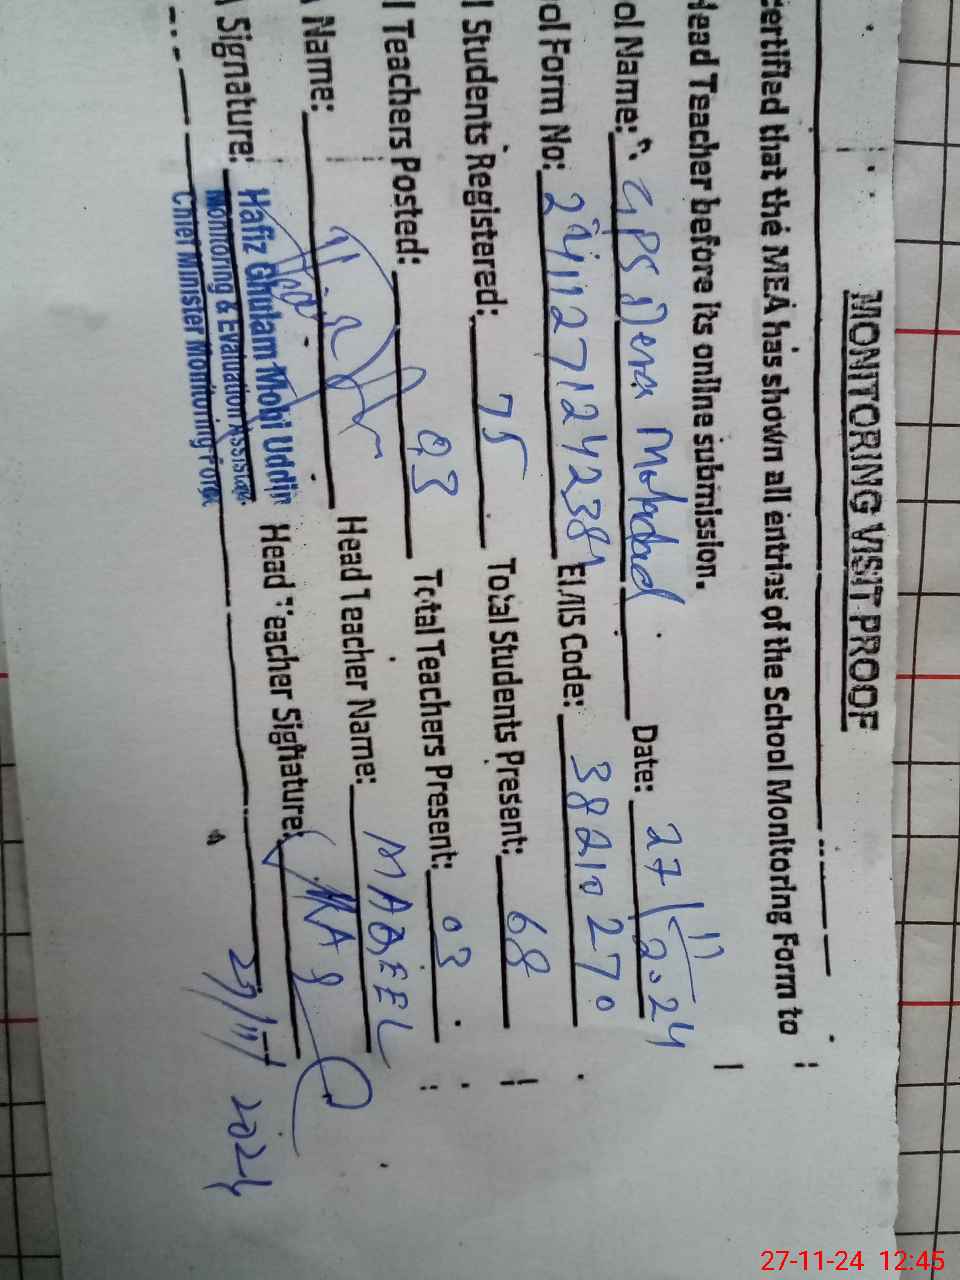 MONITORING VISIT PROOF
ertified that the MEA has shown all entries of the School Monitoring Form to
Head Teacher before its online submission.
ol Name: GPS Dera Date: 27/11/2024
ol Form No: EMIS Code: 38210270
l Students Registered: 75 Total Students Present: 68
l Teachers Posted: 03 Total Teachers Present: 03
A Name: Head Teacher Name: NABEEL
A Signature: Head Teacher Signature:
Hafiz Ghulam Mohi Uddin
Monitoring & Evaluation Assistant
Chief Minister Monitoring Force
27/11/2024
27-11-24 12:45